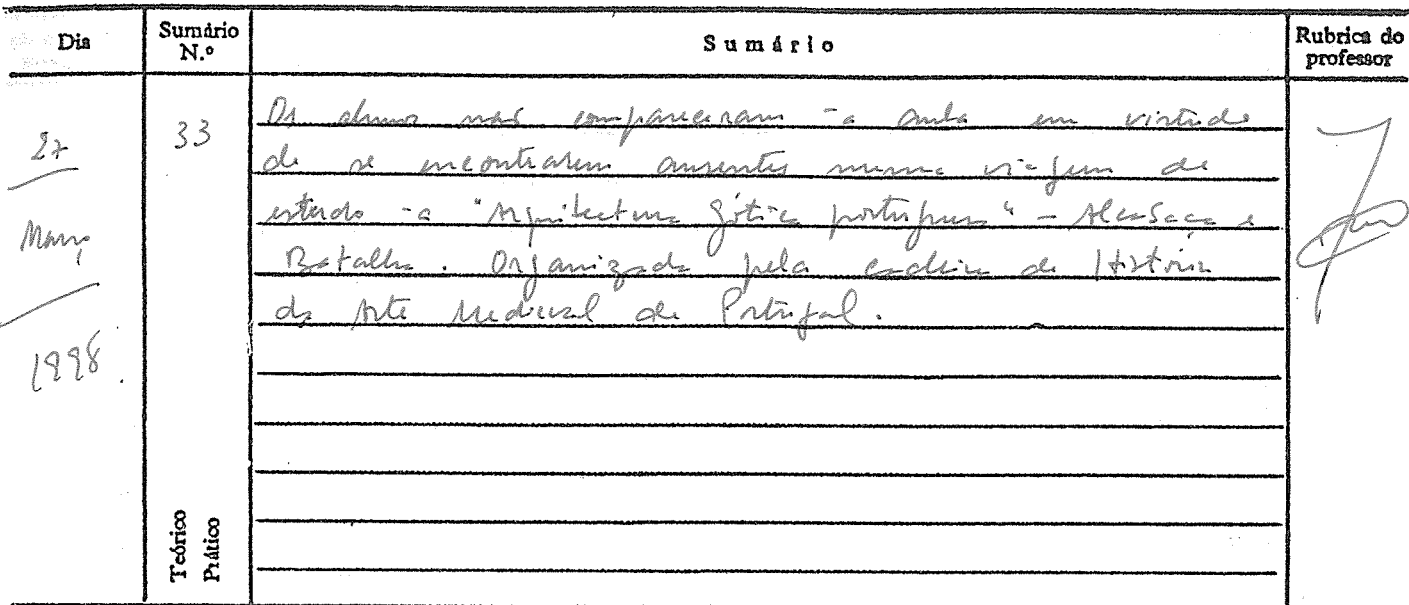 Dia
Sumário N.º
Sumário
Rubrica do professor
27
Março
1998.
33
Os alunos não compareceram à aula em virtude
de se encontrarem ausentes numa viagem de
estudo à "Arquitectura gótica portuguesa" – Alcobaça e
Batalha. Organizada pela cadeira de História
da Arte Medieval de Portugal.
Teórico
Prático